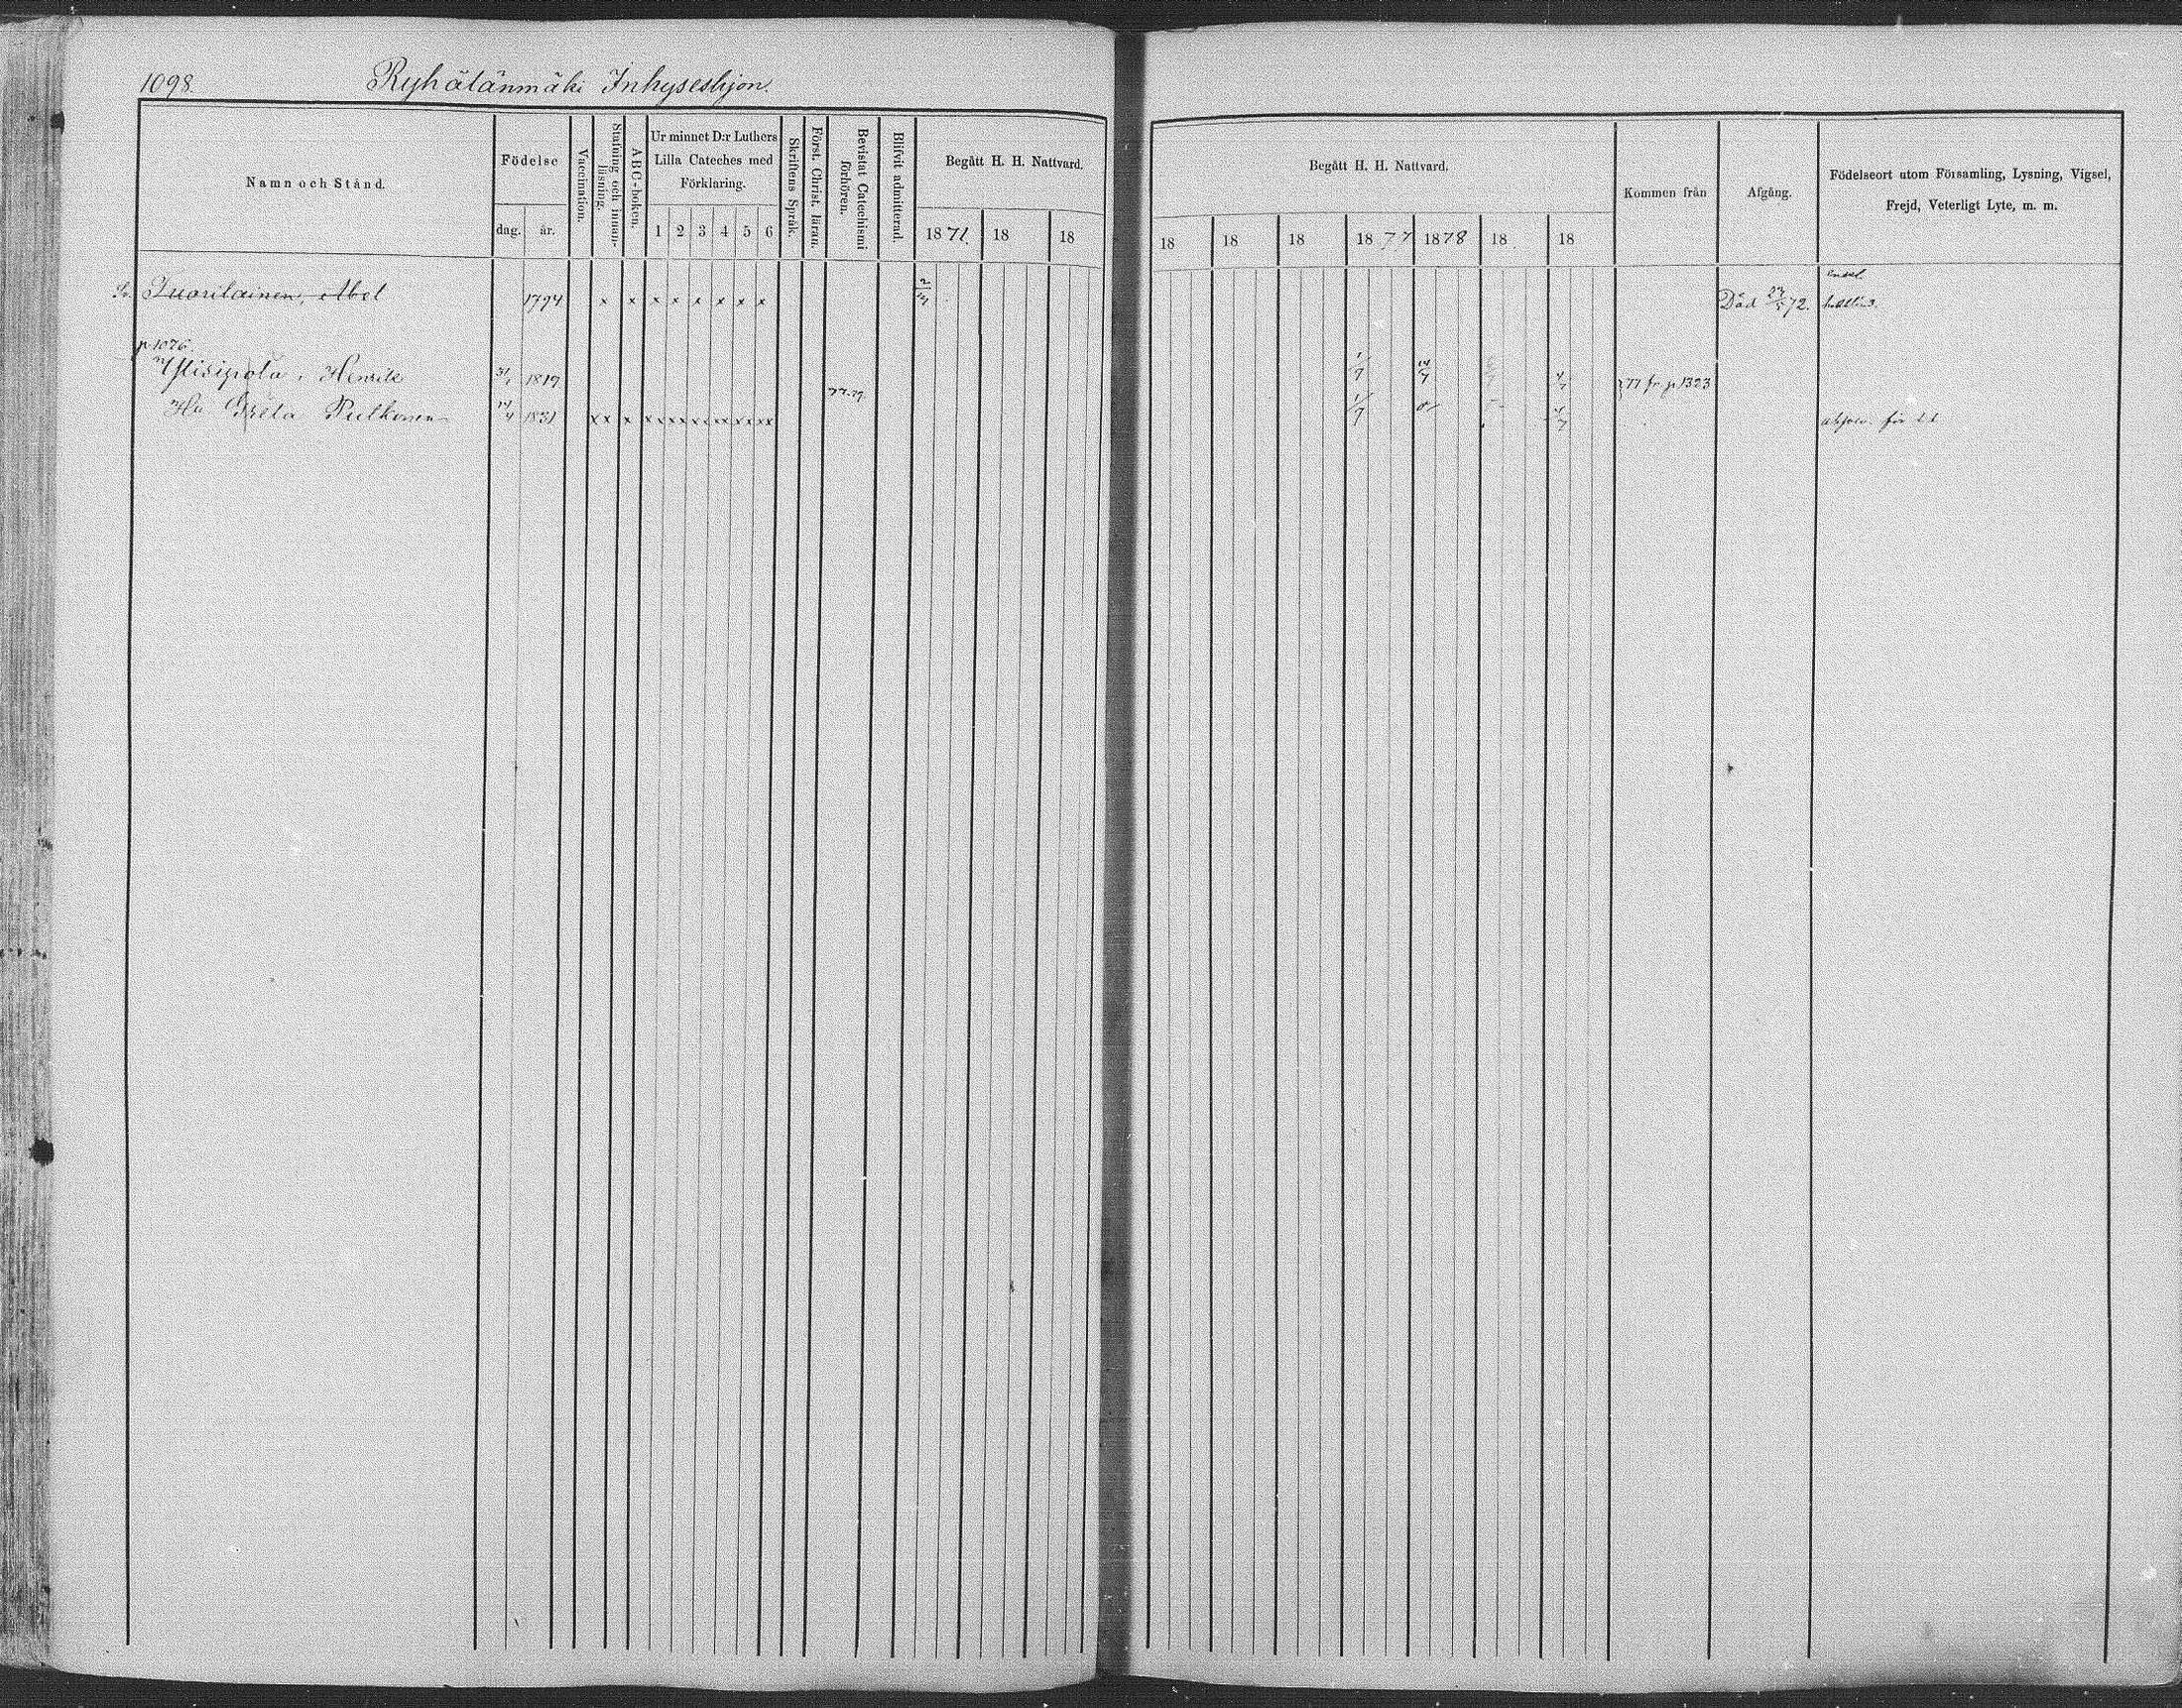 1098.
Ryhälänmäki Inhyseshjon.
Namn och Stånd.
Födelse
dag.
år.
Vaccination.
Stafning och innan-
läsning.
ABC-boken.
Ur minnet D:r Luthers
Lilla Cateches med
Förklaring.
1 2 3 4 5 6
Skriftens Språk.
Först. Christ. läran.
Bevistat Catechismi
förhören.
Blifvit admitterad.
Begått H. H. Nattvard.
1871. 18 18
Begått H. H. Nattvard.
18 18 18 1877 1878 18 18
Kommen från
Afgång.
Födelseort utom Församling, Lysning, Vigsel,
Frejd, Veterligt Lyte, m. m.
Tuorilainen, Abel 1794 x x x x x x x x Död 72.
p 1076
Ylisipola, Henrik 31/1 1819 77.79. 1/7 14/7 4/7 77 fr. p 1323
Hu Greta Pulkonen 14/4 1831 xx x xx xx xx xx xx xx 1/7 4/7